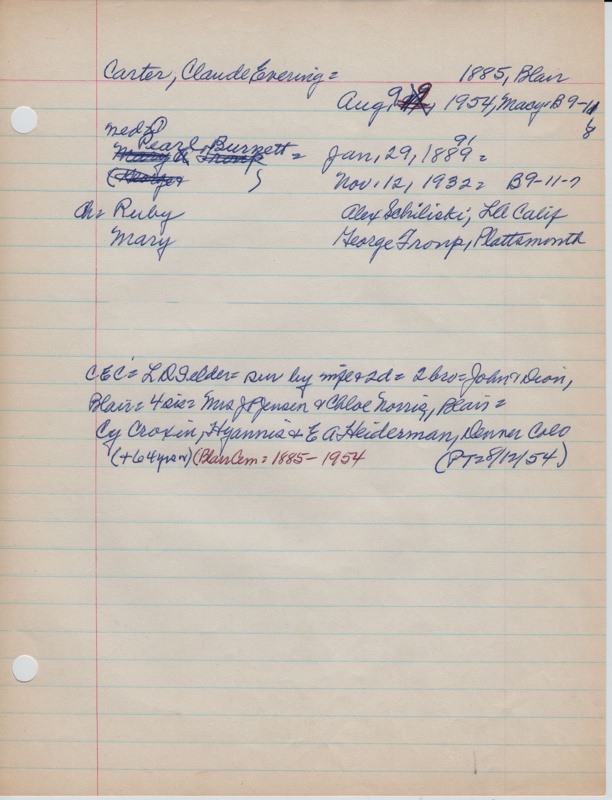 Carter, Claude Evering = 1885, Blair
Aug, 9, 1954, Macy = B9-11-8
med
Pearl Burnett = Jan, 29, 1889 = 91
Mary Tronp
(George) Nov. 12, 1932 = B9-11-7
Ch = Ruby Alex Schiliski, LA Calif
Mary George Tronp, Plattsmouth
CEC = L.D. Felder = sur by wife + 2d = 2 bro = John + Dion,
Blair = 4 sis = Mrs J P Jensen + Chloe Norris, Blair =
Cy Croxin, Hyannis + E A Heiderman, Denver Colo
(+64yrs) (Blair Cem = 1885 - 1954 (PT = 8/12/54)